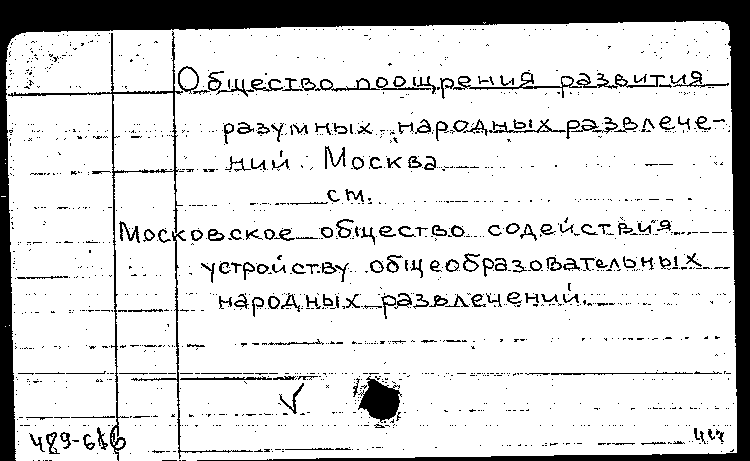 Общество поощрения развития
разумных народных развлече-
ний. Москва
см.
Московское общество содействия
устройству общеобразовательных
народных развлечений.